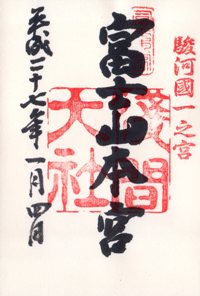 駿河國一之宮
富士山本宮
淺間
大社
平成二十七年一月四日